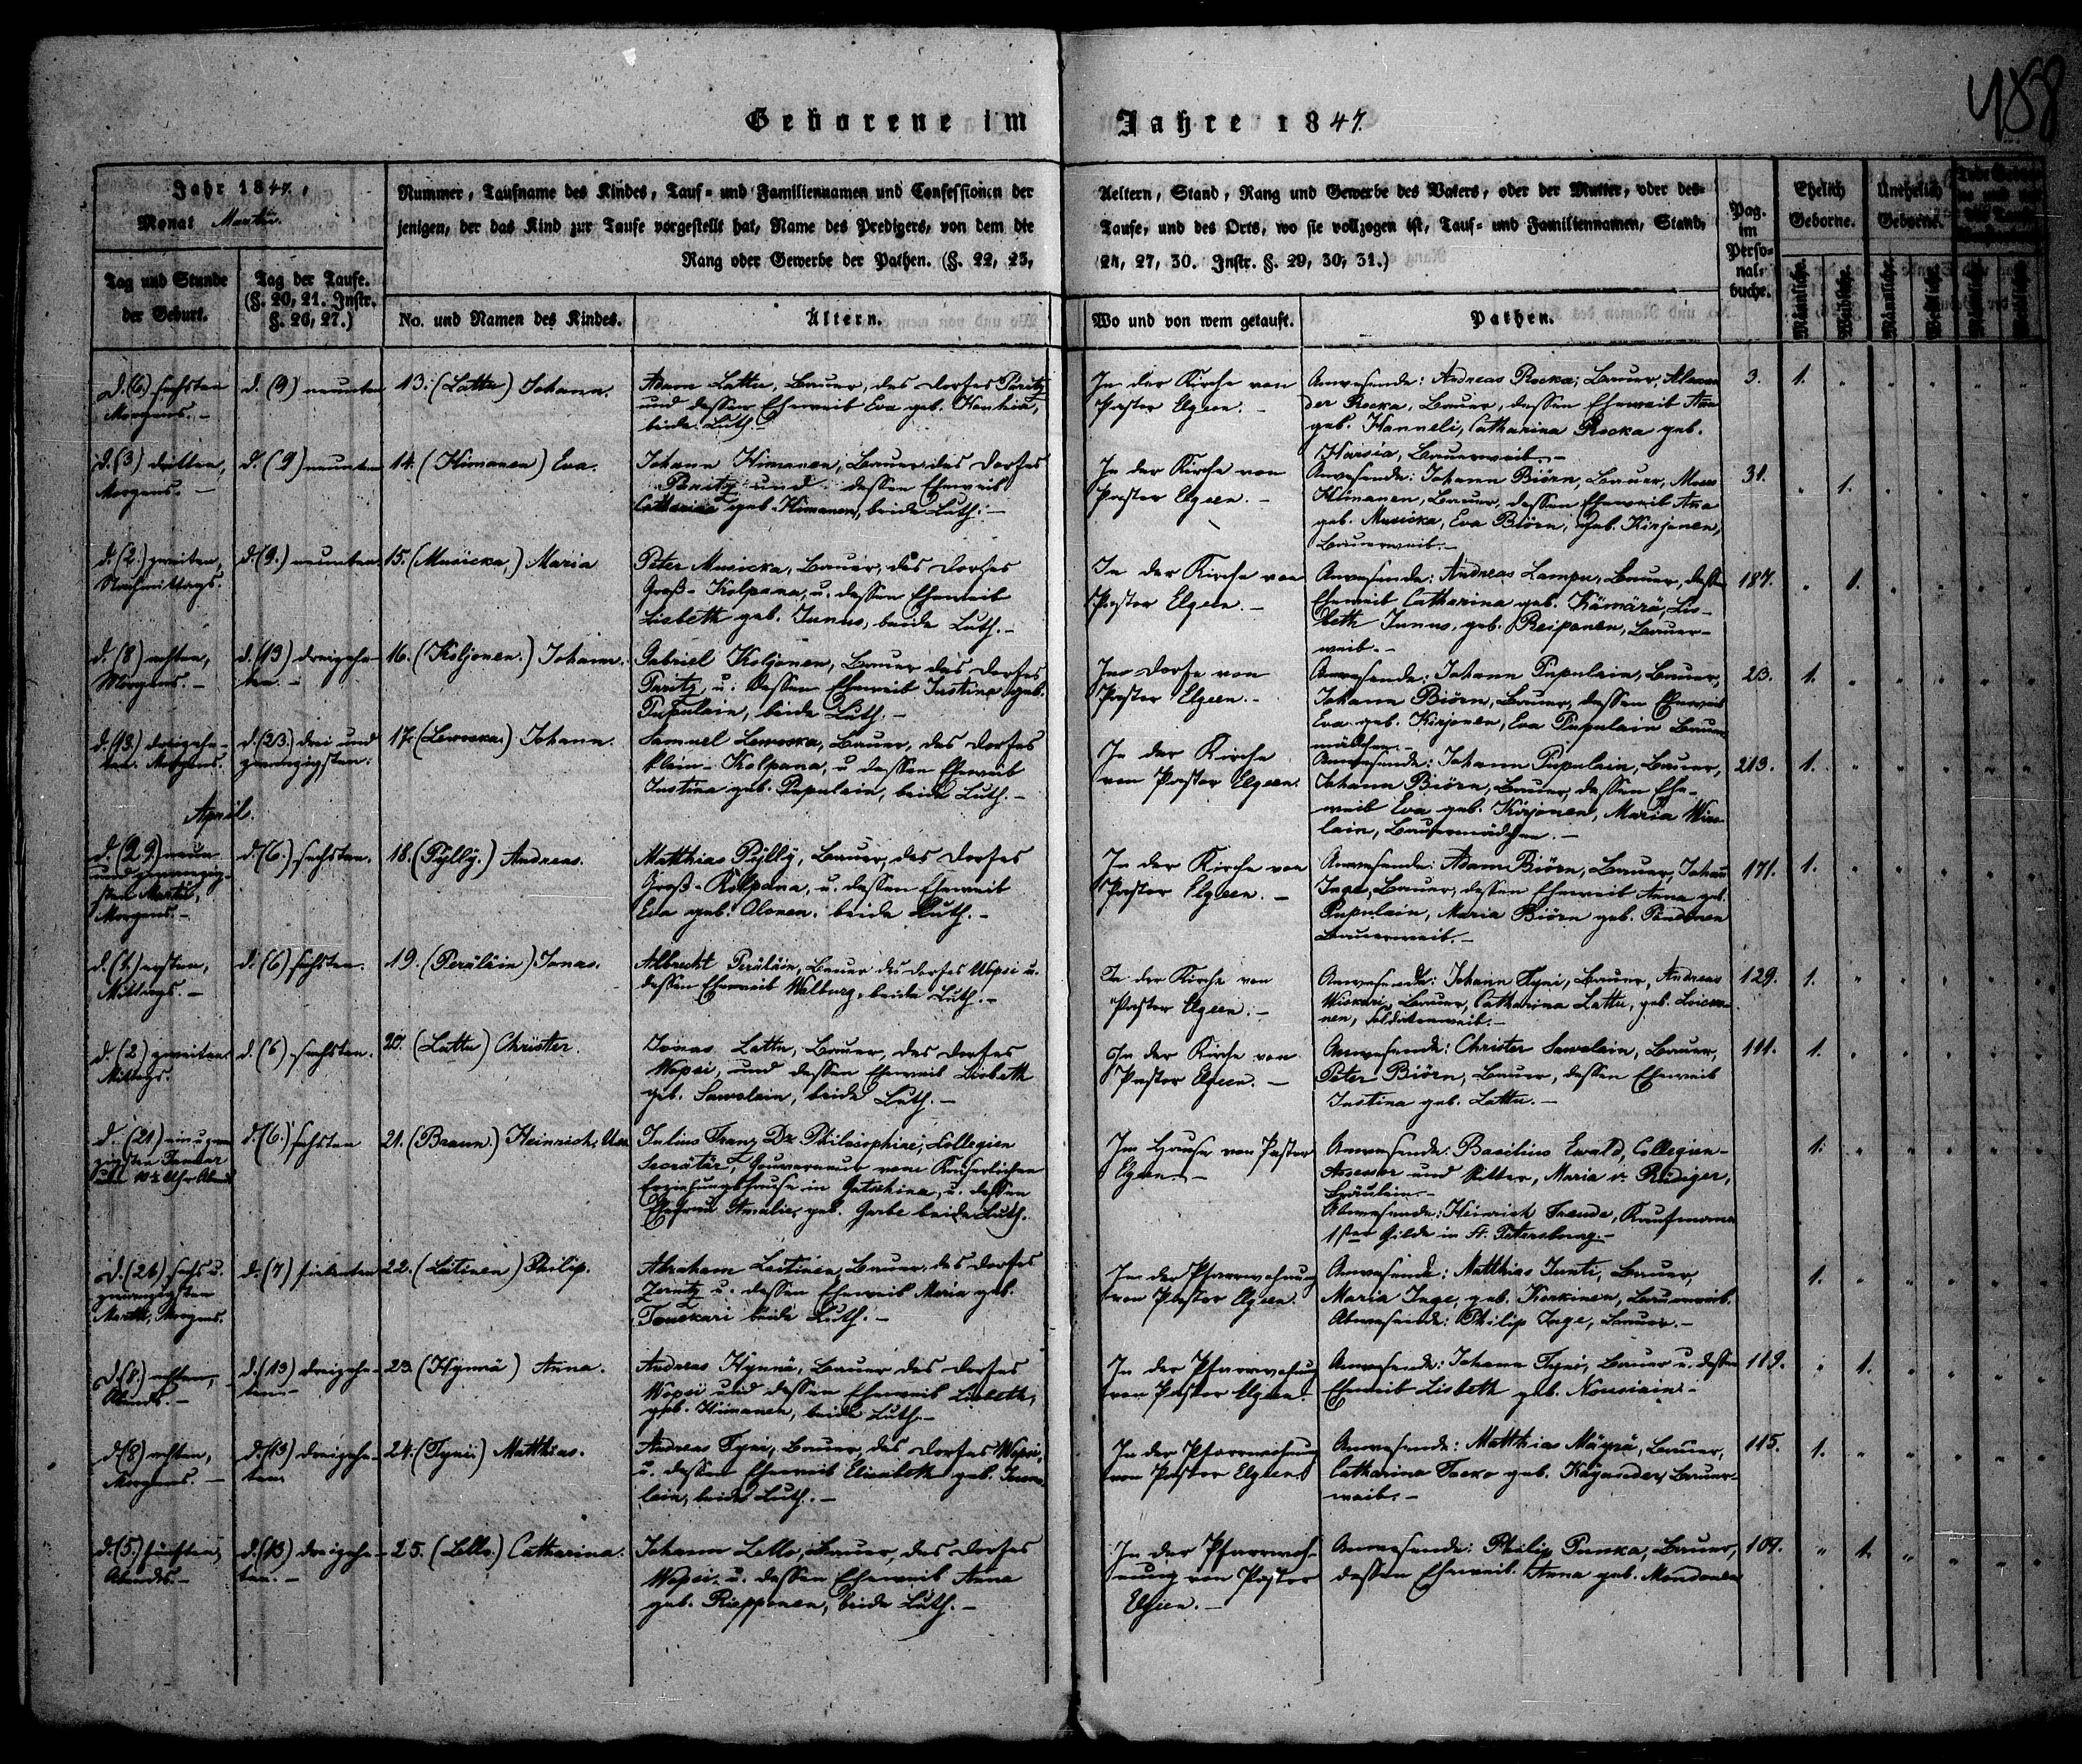 488
Geborene im Jahre 1847.
Jahr 1847.
Monat Martii.
Tag und Stunde
der Geburt.
Tag der Taufe.
(§. 20, 21. Instr.
§. 26, 27.)
Nummer, Taufname des Kindes, Tauf- und Familiennamen und Confessionen der
jenigen, der das Kind zur Taufe vorgestellt hat, Name des Predigers, von dem die
Rang oder Gewerbe der Pathen. (§. 22, 23,
No. und Namen des Kindes.
Ältern.
Aeltern, Stand, Rang und Gewerbe des Vaters, oder der Mutter, oder des-
Taufe, und des Orts, wo sie vollzogen ist, Tauf- und Familiennamen, Stand,
24, 27, 30. Instr. §. 29, 30, 31.)
Wo und von wem getauft.
Pathen.
Pag.
im
Perso-
nal-
buche.
Ehelich
Geborne.
Unehelich
Geborne.
Männliche.
Weibliche.
Männliche.
Weibliche.
Männliche.
Weibliche.
d. (6) sechsten
Morgens. -
d. (9) neunten
13. (Lattu) Johann.
Adam Lattu, Bauer, des Dorfes Paritz
und dessen Eheweib Eva geb.
beide Luth. -
In der Kirche von
Pastor Elgeen. -
Anwesende: Andreas Rocka, Bauer, Alexan
der Rocka, Bauer, dessen Eheweib Anna
geb. Hanneli, Catharina Rocka geb.
Harsia, Bauerweib. -
3. 1.
d. (3) dritten,
Morgens. -
d. (9) neunten
14. (Himanen) Eva.
Johann Himanen, Bauer des Dorfes
Paritz und dessen Eheweib
Catharina geb. Himanen, beide Luth. -
In der Kirche von
Pastor Elgeen. -
Anwesende: Johann Biörn, Bauer, Moses
Himanen, Bauer, dessen Eheweib Anna
geb. Musicka, Eva Biörn, geb. Kirjonen,
Bauerweib. -
31. 1.
d. (2.) zweiten,
Nachmittags.
d. (9.) neunten
15. (Musicka,) Maria
Peter Musicka, Bauer, des Dorfes
Groß-Kolpana, u. dessen Eheweib
Lisbeth geb. Junnus, beide Luth. -
In der Kirche von
Pastor Elgeen. -
Anwesende: Andreas Lampu, Bauer, dessen
Eheweib Catharina geb. Kämärä, Lis-
beth Junnus, geb. Reiponen, Bauer-
weib. -
187. 1.
d. (8) achten,
Morgens. -
d. (13) dreizehn-
ten. -
16. (Koljonen.) Johann.
Gabriel Koljonen, Bauer des Dorfes
Paritz u. dessen Eheweib Justina geb.
Pupulain, beide Luth. -
Im Dorfe von
Pastor Elgeen. -
Anwesende: Johann Pupulain, Bauer,
Johann Biörn, Bauer, dessen Eheweib
Eva geb. Kirjonen, Eva Pupulain Bauer
mädchen. -
23. 1.
d. (13.) dreizehn-
ten. Morgens.
d. (23.) drei und
zwanzigsten.
17. (Lewoska.) Johann.
Samuel Lewoska, Bauer, des Dorfes
Klein-Kolpana, u. dessen Eheweib
Justina geb. Pupulain, beide Luth. -
In der Kirche
von Pastor Elgeen.
Anwesende: Johann Pupulain, Bauer,
Johann Biörn, Bauer, dessen Ehe-
weib Eva geb. Kirjonen, Maria
lain, Bauermädchen. -
213. 1.
April.
d. (29.) neun
und zwanzig-
sten Martii,
Morgens. -
d. (6.) sechsten.
18. (Pylly.) Andreas.
Matthias Pylly, Bauer, des Dorfes
Groß-Kolpana, u. dessen Eheweib
Eva geb. Alonen. beide Luth. -
In der Kirche von
Pastor Elgeen. -
Anwesende: Adam Biörn, Bauer, Johann
Inge, Bauer, dessen Eheweib Anna geb.
Pupulain, Maria Biörn geb.
Bauerweib. -
171. 1.
d. (1.) ersten,
Mittags. -
d. (6) sechsten.
19. (Peräläin) Jonas.
Albrecht Peräläin, Bauer des Dorfes Wopsi u.
dessen Eheweib Walburg, beide Luth. -
In der Kirche von
Pastor Elgeen. -
Anwesende: Johann Tyni, Bauer, Andreas
Wiskari, Bauer, Catharina Lattu, geb.
nen, Soldatenweib. -
129. 1.
d. (2) zweiten
Mittags.
d. (6) sechsten.
20. (Lattu) Christer.
Jonas Lattu, Bauer, des Dorfes
Wopsi, und dessen Eheweib Lisbeth
geb. Sawolain, beide Luth. -
In der Kirche von
Pastor Elgeen. -
Anwesende: Christer Sawolain, Bauer,
Peter Biörn, Bauer, dessen Eheweib
Justina geb. Lattu. -
111. 1.
d. (21) ein u. zwan
zigsten Januar
Abend
d. (6.) sechsten
21. (Braun) Heinrich,
Julius Franz Dr. Philosophiae, Collegien
Secretär, Gouverneur vom Kaiserlichen
Erziehungshause in Gatschina, u. dessen
Ehefrau Amalie, geb. Garbe beide Luth.
Im Hause von Pastor
Elgeen. -
Anwesende: Basilius Ewald, Collegien-
Assessor und Ritter, Maria v. Rüdiger,
Fräulein. -
Abwesende: Heinrich Freude, Kaufmann
1ster Gilde in St. Petersburg. -
1.
d. (26) sechs u.
zwanzigsten
Martii, Morgens.
d. (7) siebenten
22. (Laitinen) Philip.
Abraham Laitinen, Bauer, des Dorfes
u. dessen Eheweib Maria geb.
Touskari beide Luth. -
In der Pfarrwohnung
von Pastor Elgeen.
Anwesende: Matthias Junti, Bauer,
Maria Inge, geb. Korkinen, Bauerweib.
Abwesende: Philip Inge, Bauer. -
1.
d. (8.) achten,
Abends. -
d. (13) dreizehn-
ten. -
23. (Hynnä) Anna.
Andreas Hynnä, Bauer des Dorfes
Wopsi und dessen Eheweib Lisbeth,
geb. Himanen, beide Luth. -
In der Pfarrwohnung
von Pastor Elgeen
Anwesende: Johann Tyni, Bauer u. dessen
Eheweib Lisbeth geb. Nousiain. -
119. 1.
d. (8) achten,
Morgens. -
d. (13) dreizehn-
ten.
24. (Tyni) Matthias.
Andreas Tyni, Bauer, des Dorfes Wopsi,
u. dessen Eheweib Elisabeth geb.
lain, beide Luth. -
In der Pfarrwohnung
von Pastor Elgeen
Anwesende: Matthias Mäyrä, Bauer,
Catharina geb. Kayander, Bauer-
weib. -
115. 1.
d. (5.) fünften,
Abends. -
d. (13) dreizehn-
ten. -
25. (Lello.) Catharina.
Johann Lello, Bauer, des Dorfes
Wopsi u. dessen Eheweib Anna
geb. Riepponen, beide Luth. -
In der Pfarrwoh-
nung von Pastor
Elgeen. -
Anwesende: Philip Punka, Bauer,
dessen Eheweib Anna geb. Mondonen
109. 1.